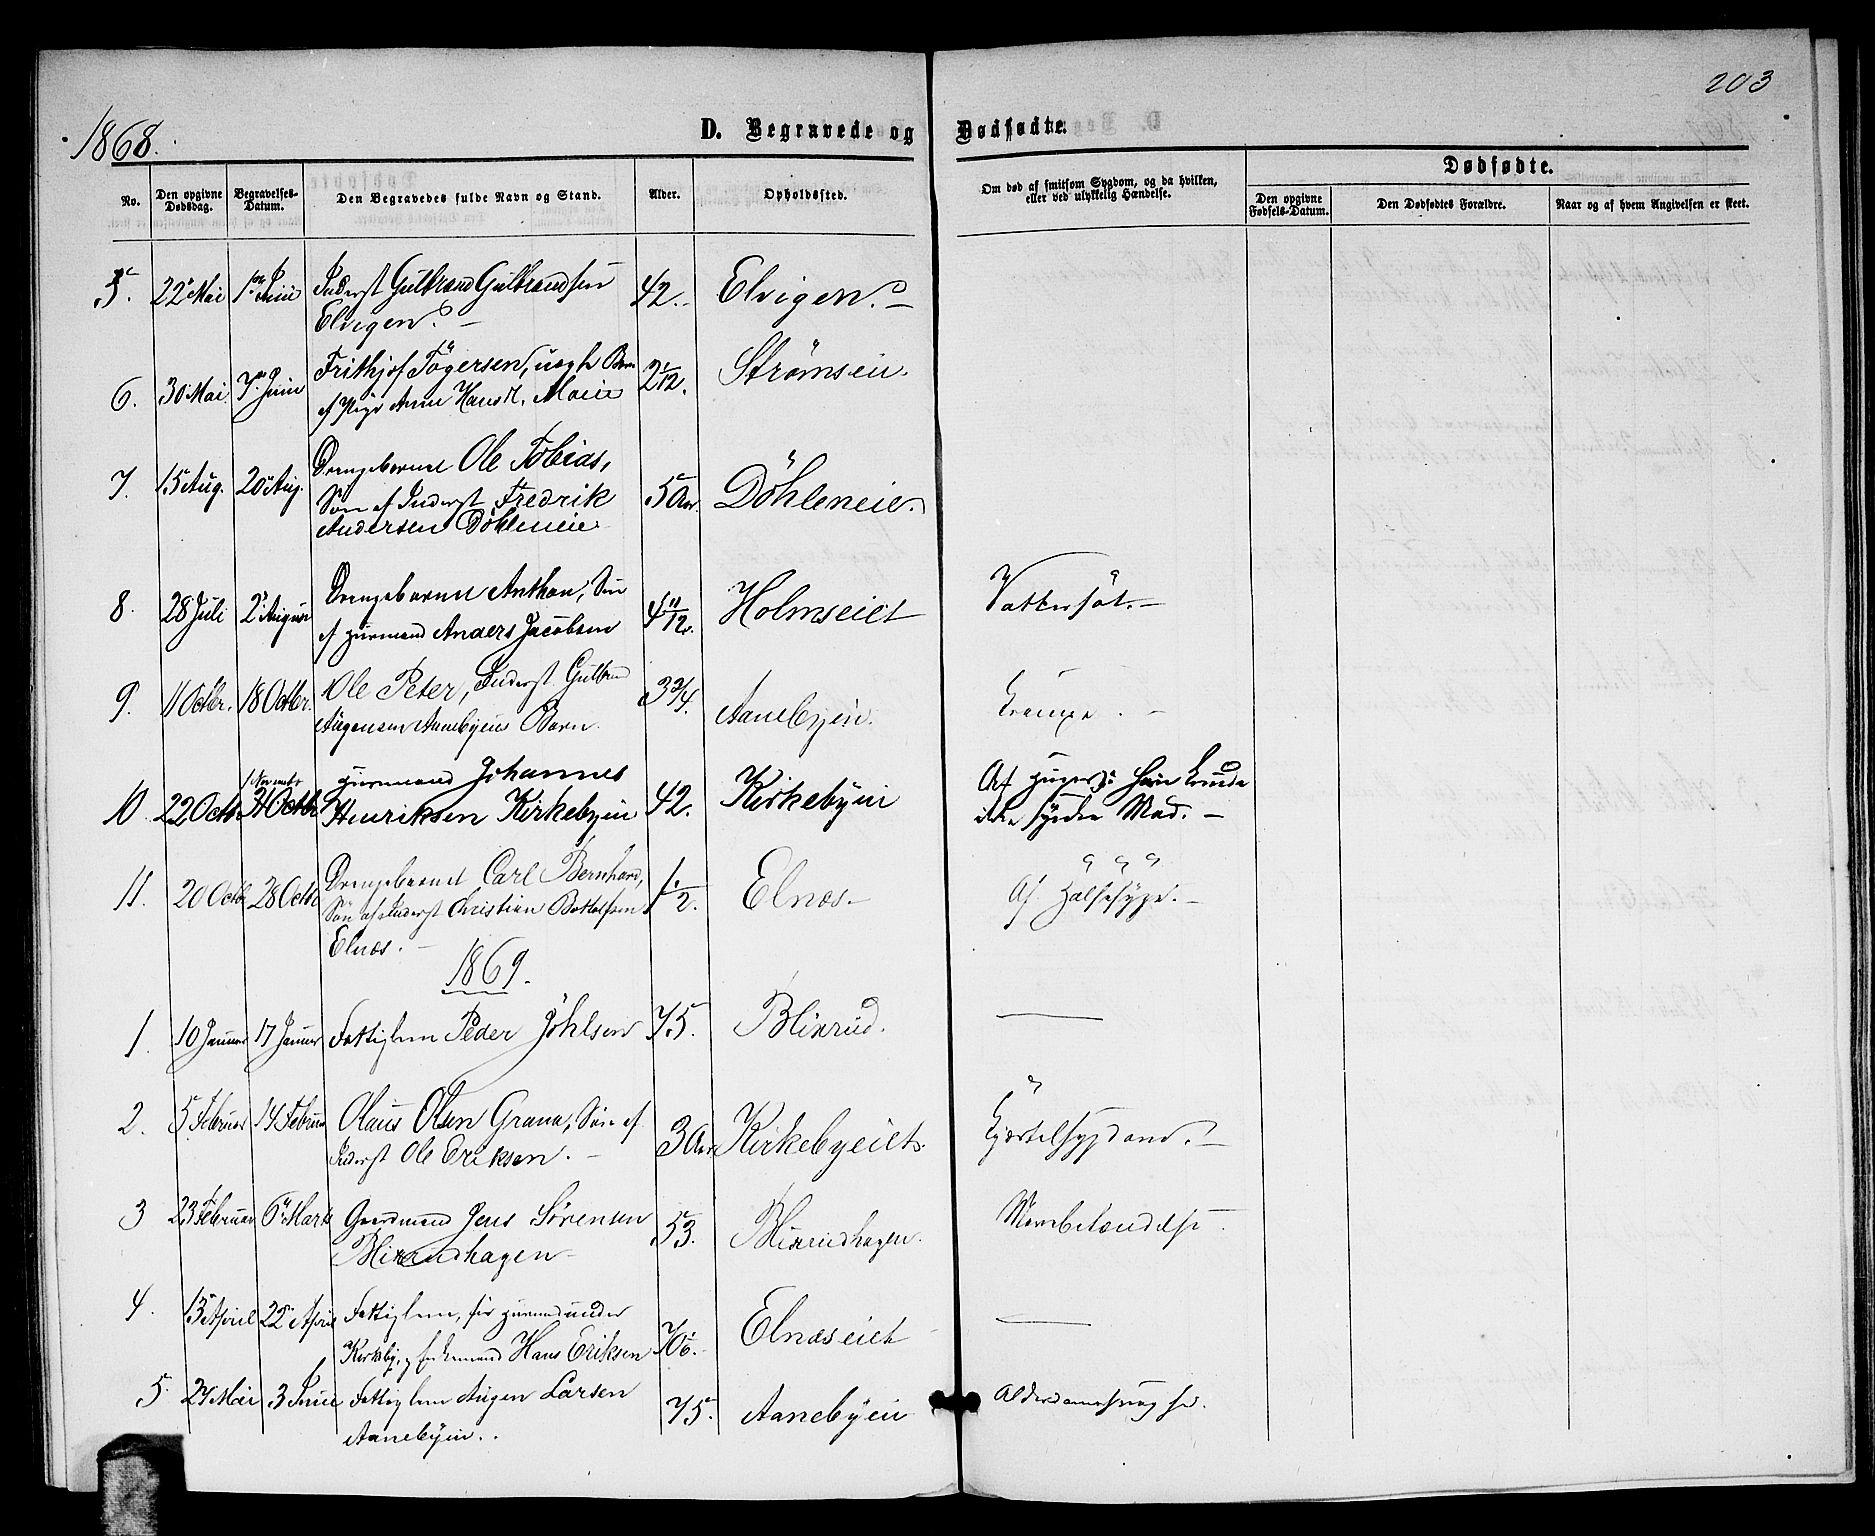 203
1868.
D. Begravede og Dødfødte.
No.
Den opgivne Dødsdag.
Begravelses-Datum.
Den Begravedes fulde Navn og Stand.
Alder.
Opholdssted.
Om død af smitsom Sygdom, og da hvilken,
eller ved ulykkelig Hændelse.
Dødfødte.
Den opgivne Fødsels-Datum.
Den Dødfødtes Forældre.
Naar og af hvem Angivelsen er skeet.
5. 22 Mai 1ste Juni Inderst Gulbrand Gulbrandsen 42. Elvigen.
Elvigen.
6. 30 Mai 7de Juni Frithjof Tögersen, uægte Barn 2 1/12. Strømseie.
af Pige Anne Hansd. Moeie
7. 15 Aug. 20 Aug. Drengebarnet Ole Tobias, 5 Aar. Döhleneie.
Sön af Inderst Fredrik
Andersen Döhleneie
8. 28 Juli 2 August Drengebarnet Anthon, Sön 4 11/12. Holmseiet Vattersot.
af Huusmand Anders Jacobsen
9. 11 Octbr. 18 Octbr. Ole Peter, Inderst Gulbrand 3 3/4. Aanebyeie. Krampe.
Augensen Aanebyeies Barn.
10. 22 Octbr 1 November 31 Octbr Huusmand Johannes 42. Kirkebyeie Af
Henriksen Kirkebyeie ikke Mad.
11. 20 Octbr 28 Octbr Drengebarnet Carl Bernhard, 1/2. Elnæs. Af Halssyge.
Sön af Inderst Christian Bottolfsen
Elnæs.
1869.
1. 10 Januar 17 Januar Fattiglem Peder Jöhlsen 75. Blixrud.
2. 5 Februar 14 Februar Olaus Olsen Grana, Sön af 3 Aar Kirkebyeiet Kjertelsygdom.
Inderst Ole Eriksen.
3 23 Februar 6 Marts Gaardmand Jens Sörensen 53. Blixrudhagen. Mavebetændelse.
Blixrudhagen
4. 13 April 22 April Fattiglem, før Huusmand under 76. Elnæseiet
Kirkeby, Hans Eriksen
5. 27 Mai 3 Juni Fattiglem Augen Larsen 75. Aanebyeie Alderdomssvaghed.
Aanebyeie.